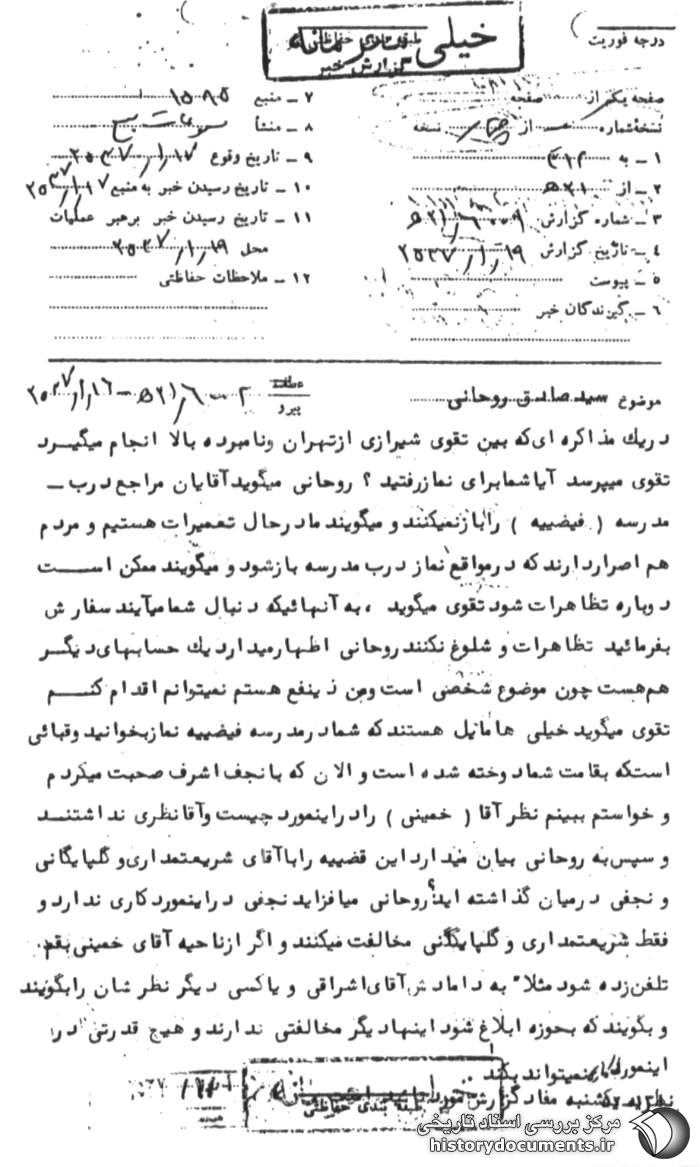 خیلی محرمانه
طبقه بندی حفاظتی
گزارش خبر
درجه فوریت
صفحه یک از صفحه
نسخه شماره از نسخه
۱ ـ به ۳۱۲
۲ ـ از ۲۱ ه
۳ ـ شماره گزارش
۴ ـ تاریخ گزارش ۲۵۳۷٫۱٫۱۹
۵ ـ پیوست
۶ ـ گیرندگان خبر
۷ ـ منبع ۱۵۰۹۵
۸ ـ منشأ
۹ ـ تاریخ وقوع ۲۵۳۷٫۱٫۱۷
۱۰ ـ تاریخ رسیدن خبر به منبع ۲۵۳۷٫۱٫۱۷
۱۱ ـ تاریخ رسیدن خبر برهبر عملیات
محل ۲۵۳۷٫۱٫۱۹
۱۲ ـ ملاحظات حفاظتی
موضوع سید صادق روحانی
عطف
پیرو
۲۵۳۷٫۱٫۱۶
دریك مذاکره ای که بین تقوی شیرازی ازتهران ونامبرده بالا انجام میگیرد
تقوی میپرسد آیا شما برای نماز رفتید ؟ روحانی میگوید آقایان مراجع درب ـ
مدرسه ( فیضییه ) را بازنمیکنند و میگویند ما در حال تعمیرات هستیم و مردم
هم اصراردارند که در مواقع نماز درب مدرسه بازشود و میگویند ممکن است
دوباره تظاهرات شود تقوی میگوید ، به آنهائیکه دنبال شما میآیند سفارش
بفرمائید تظاهرات و شلوغ نکنند روحانی اظهارمیدارد یك حسابهای دیگر
هم هست چون موضوع شخصی است ومن ذینفع هستم نمیتوانم اقدام کنم
تقوی میگوید خیلی ها مایل هستند که شما در مدرسه فیضییه نماز بخوانید وقبائی
استکه بقامت شما دوخته شده است و الان که با نجف اشرف صحبت میکردم
و خواستم ببینم نظر آقا ( خمینی ) را در اینمورد چیست وآقا نظری نداشتند
و سپس به روحانی بیان میدارد این قضییه را با آقای شریعتمداری و گلپایگانی
و نجفی درمیان گذاشته اید؟ روحانی میافزاید نجفی در اینمورد کاری ندارد و
فقط شریعتمداری و گلپایگانی مخالفت میکنند و اگر ازناحیه آقای خمینی بقم
تلفن زده شود مثلا" به دامادش آقای اشراقی و یا کسی دیگر نظر شان رابگویند
و بگویند که بحوزه ابلاغ شود اینها دیگر مخالفتی ندارند و هیچ قدرتی در
اینمورد نمیتواند بکند ..
نظریه یکشنبه مفاد گزارش مورد
طبقه بندی حفاظتی
مرکز بررسی اسناد تاریخی
historydocuments.ir